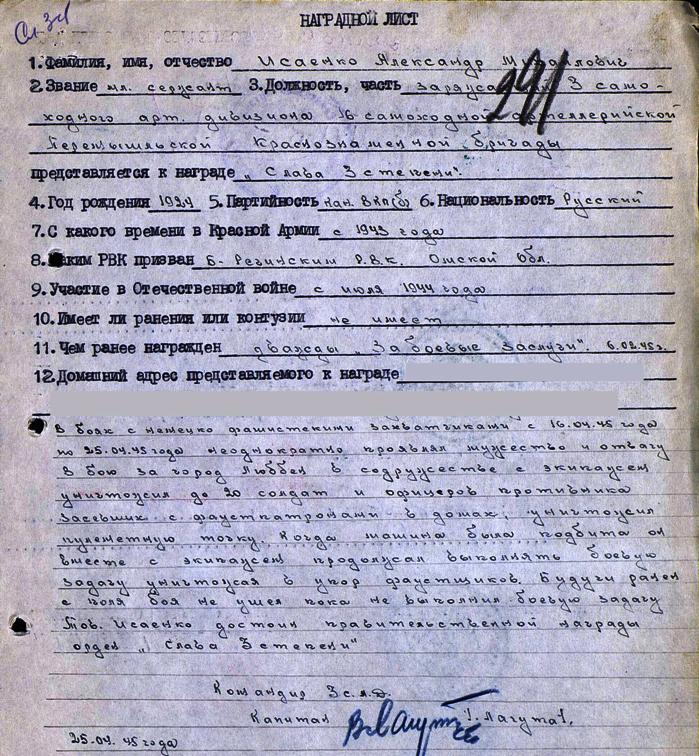 Сл. 3 ст
НАГРАДНОЙ ЛИСТ
1. Фамилия, имя, отчество Исаенко Александр Михайлович
2. Звание мл. сержант 3. Должность, часть 3 само-
ходного арт. дивизиона 16 самоходной артеллерийской
Перемышльской Краснознаменной бригады
представляется к награде „Слава 3 степени".
4. Год рождения 1924 5. Партийность кан. ВКП(б) 6. Национальность Русский
7. С какого времени в Красной Армии с 1943 года
8. Каким РВК призван Б-Речинским Р.В.К. Омской Обл.
9. Участие в Отечественной войне с июля 1944 года
10. Имеет ли ранения или контузии не имеет
11. Чем ранее награжден дважды „За боевые заслуги". 6.02.45г.
12. Домашний адрес представляемого к награде
В боях с немецко фашисткими захватчиками с 16.04.45 года
по 25.04.45 года неоднократно проявлял мужество и отвагу
В бою за город Люббен в содружестве с экипажем
уничтожил до 20 солдат и офицеров противника
засевших с фаустпатронами в домах, уничтожил
пулеметную точку. Когда машина была подбита он
вместе с экипажем продолжал выполнять боевую
задачу уничтожая в упор фаустщиков. Будучи ранен
с поля боя не ушел пока не выполнил боевую задачу
Тов. Исаенко достоин правительственной награды
орден „Слава 3 степени"
Командир 3 с.А.Д.
Капитан /Лагута/.
25.04.45 года